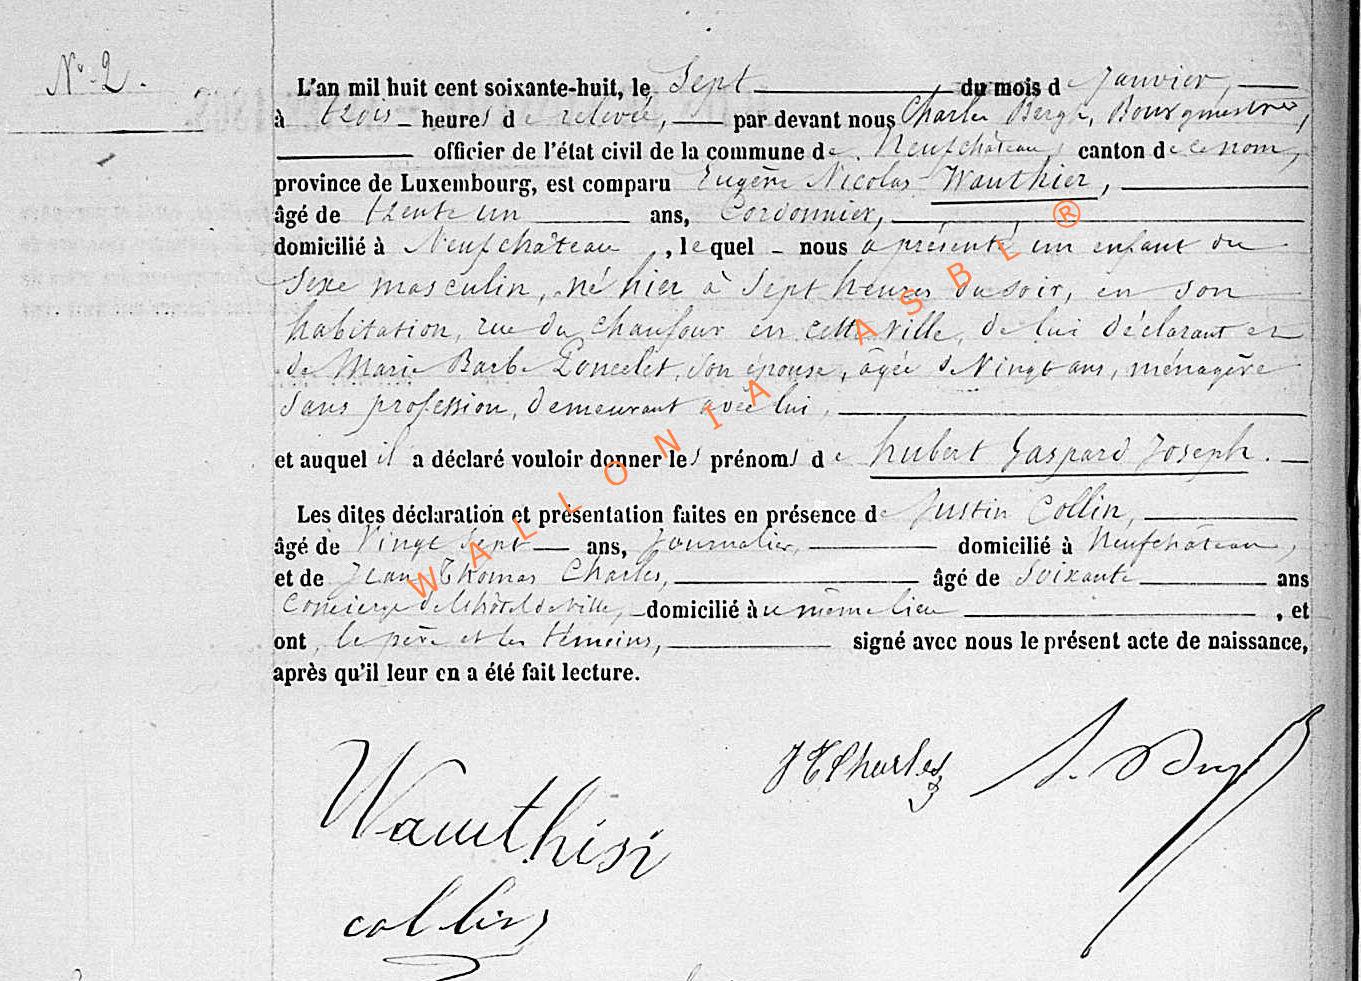 N° 2.
L'an mil huit cent soixante-huit, le Sept du mois de Janvier,
à trois heures de relevée, par devant nous Charles Bergh, Bourgmestre,
officier de l'état civil de la commune de Neufchâteau, canton de ce nom,
province de Luxembourg, est comparu Eugène Nicolas Wauthier,
âgé de trente un ans, Cordonnier,
domicilié à Neufchâteau, lequel nous a présenté un enfant du
sexe masculin, né hier à Sept heures du soir, en son
habitation, rue du Chaufour en cette ville, de lui déclarant et
de Marie Barbe Poncelet, son épouse, âgée de Vingt ans, ménagère
sans profession, demeurant avec lui,
et auquel il a déclaré vouloir donner les prénoms de hubert Gaspard Joseph.
Les dites déclaration et présentation faites en présence de Justin Collin,
âgé de Vingt Sept ans, Journalier, domicilié à Neufchâteau,
et de Jean Thomas Charles, âgé de Soixante ans
Concierge de l'hôtel de ville, domicilié au même lieu, et
ont, le père et les témoins, signé avec nous le présent acte de naissance,
après qu'il leur en a été fait lecture.
WALLONIA ASBL ®
JTCharles
Wauthier
collin